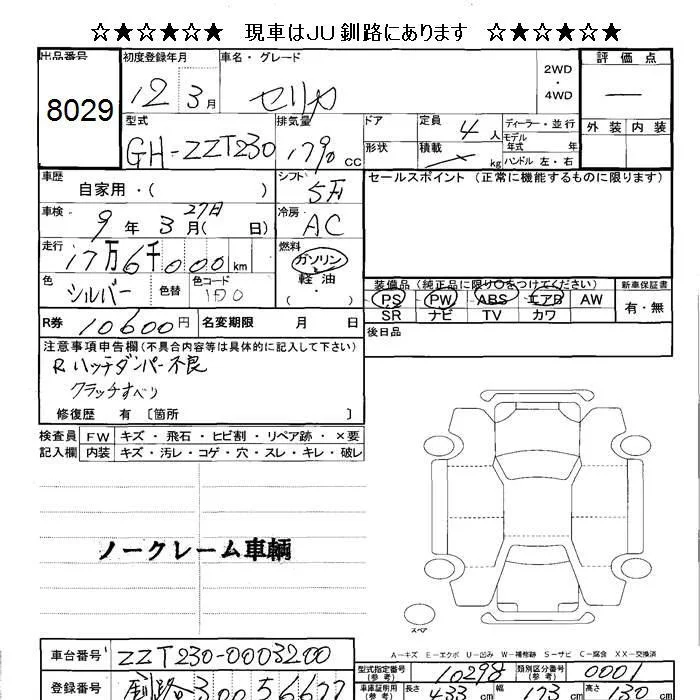 ☆★☆★☆★☆ 現車はJU釧路にあります ☆★☆★☆★☆
出品番号 8029
初度登録年月 12 3月
車名・グレード セリカ
2WD ・ 4WD
評価点 —
外装 内装
型式 GH-ZZT230
排気量 1790 CC
ドア 形状
定員 4人
積載 kg
ディーラー・並行
モデル年式 年
ハンドル 左・右
車歴 自家用・( )
シフト 5F
セールスポイント (正常に機能するものに限ります)
車検 9年3月(27日 日)
冷房 AC
走行 17万6千000km
燃料 ガソリン 軽・油 ・
色 シルバー 色替 色コード 1D0
装備品 (純正品に限り○をつけてください)
新車保証書
PS PW ABS エアB AW
有・無
SR ナビ TV カワ
R券 10600円 名変期限 月 日
後日品
注意事項申告欄(不具合内容等は具体的に記入して下さい)
R.ハッチダンパー不良
クラッチすべり
修復歴 有 〔箇所 〕
検査員 FW キズ・飛石・ヒビ割・リペア跡・×要
記入欄 内装 キズ・汚レ・コゲ・穴・スレ・キレ・破レ
ノークレーム車輌
スペア
A－キズ E－エクボ U－凹み W－補修跡 S－サビ C－腐食 XX－交換済
車台番号 ZZT230-0003200
型式指定番号(参考) 10298
類別区分番号(参考) 0001
登録番号 釧路 300
車庫証明用(参考) 長さ 433 cm 幅 173 cm 高さ 130 cm